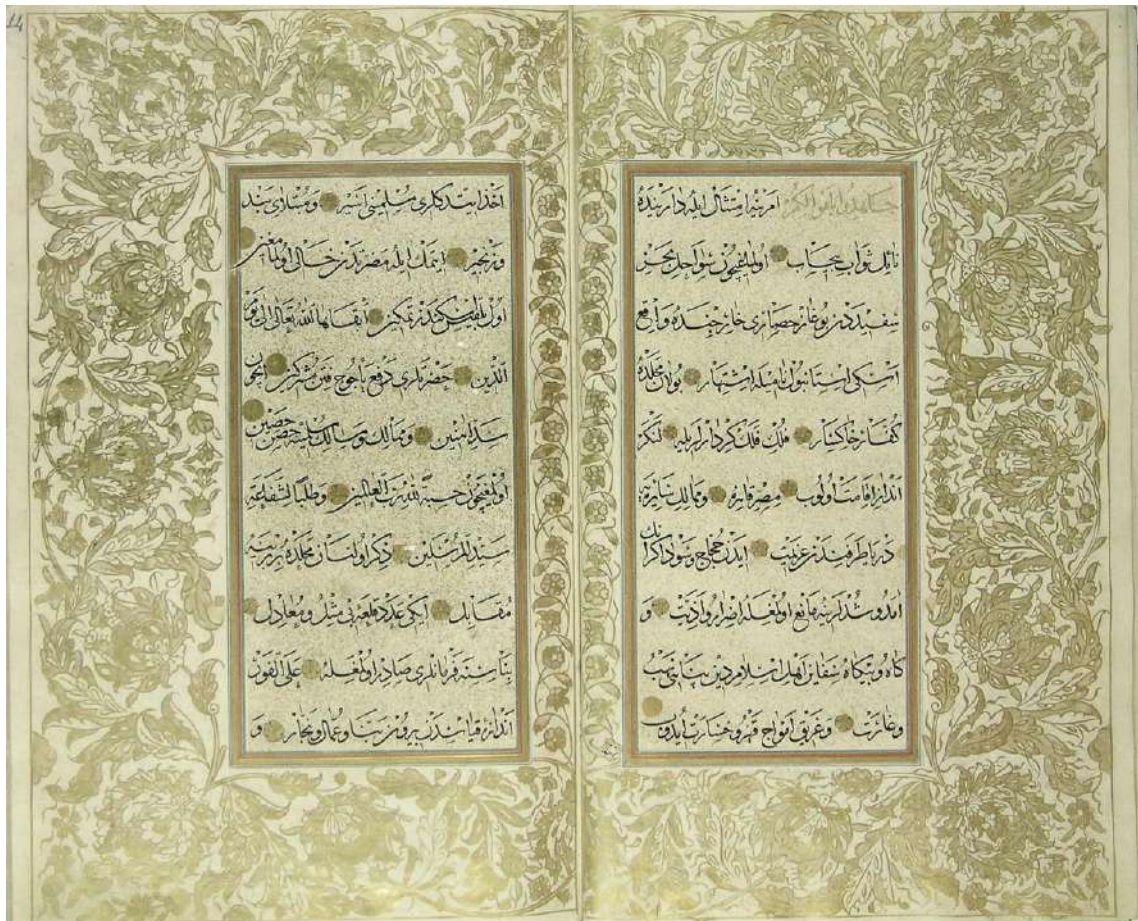 امرینه امتثال ایله دارینده
نائل ثواب بیحساب اولملغیچون سواحل بحر
سفیدده بوغاز حصارلری خارجنده واقع
اسکی استانبول نامیله اشتهار بولان محلده
کفار خاکسار فلک فلک کردارلریله لنکر
انداز اقامت اولوب مصر قاهره وممالک سائره
دریا طرفندن عزیمت ایدن حجاج وسوداکرانک
آمد وشدلرینه مانع اولمغله اضرار واذیت و
کاه وبیکاه سفاین اهل اسلام دین مبینی نهب
وغارت وغریق امواج قهر وخسارت ایدوب
اخذ ایتدکلری مسلمینی اسیر ومبتلای بند
وزنجیر ایتمک ایله مضرتدن خالی اولمامغین
اول بلقیس سکندر تمکین ابقاها الله تعالی الی یوم
الدین حضرتلری دفع یأجوج فتن مشرکین ایچون
سد آهنین وممالک ومسالک مسلمینه حصن حصین
اولمغیچون حسبة لله رب العالمین وطلبا لشفاعة
سید المرسلین ذکر اولنان محلده بربرینه
مقابل ایکی عدد قلعهٔ بی مثل ومعادل
بناسنه فرمانلری صادر اولمغله علی الفور
اندازهٔ قیاسدن بیرون بنا وعمال ونجار و